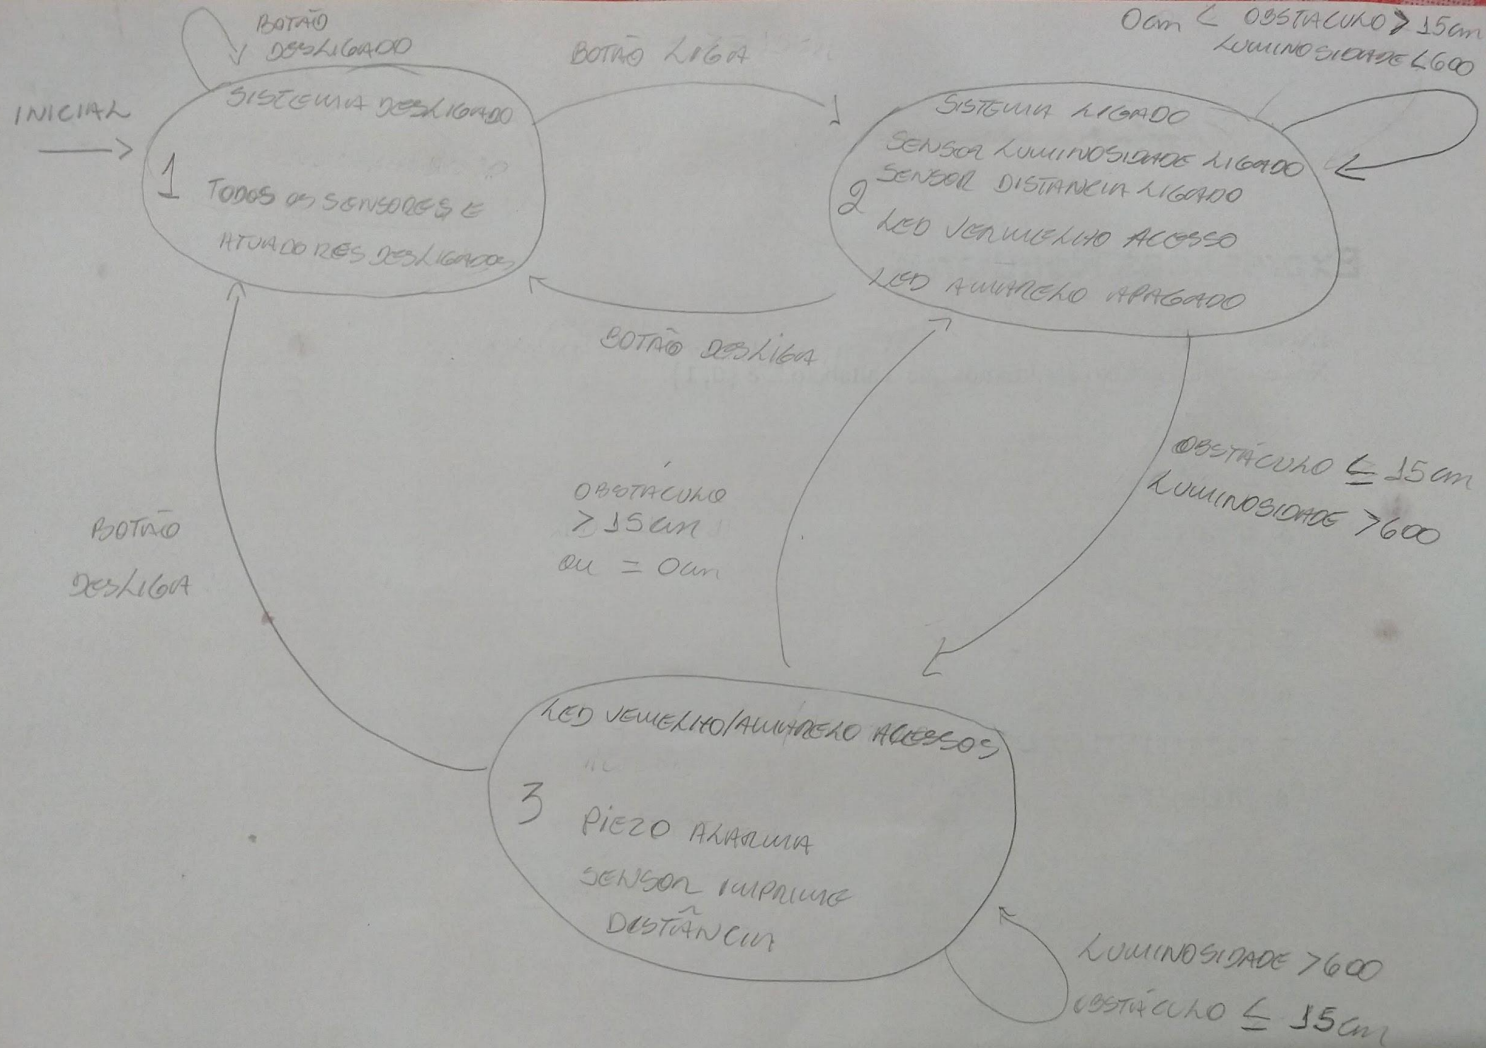 BOTÃO
DESLIGADO
BOTÃO LIGA
0cm < OBSTACULO > 15cm
LUMINOSIDADE < 600
INICIAL
SISTEMA DESLIGADO
1 TODOS OS SENSORES E
ATUADORES DESLIGADOS
SISTEMA LIGADO
SENSOR LUMINOSIDADE LIGADO
SENSOR DISTANCIA LIGADO
2 LED VERMELHO ACESSO
LED AMARELO APAGADO
BOTÃO DESLIGA
OBSTÁCULO ≤ 15cm
LUMINOSIDADE > 600
OBSTÁCULO
> 15cm
OU = 0cm
BOTÃO
DESLIGA
LED VEMELHO/AMARELO ACESSOS
3 PIEZO ALARMA
SENSOR IMPRIME
DISTÂNCIA
LUMINOSIDADE > 600
OBSTÁCULO ≤ 15cm